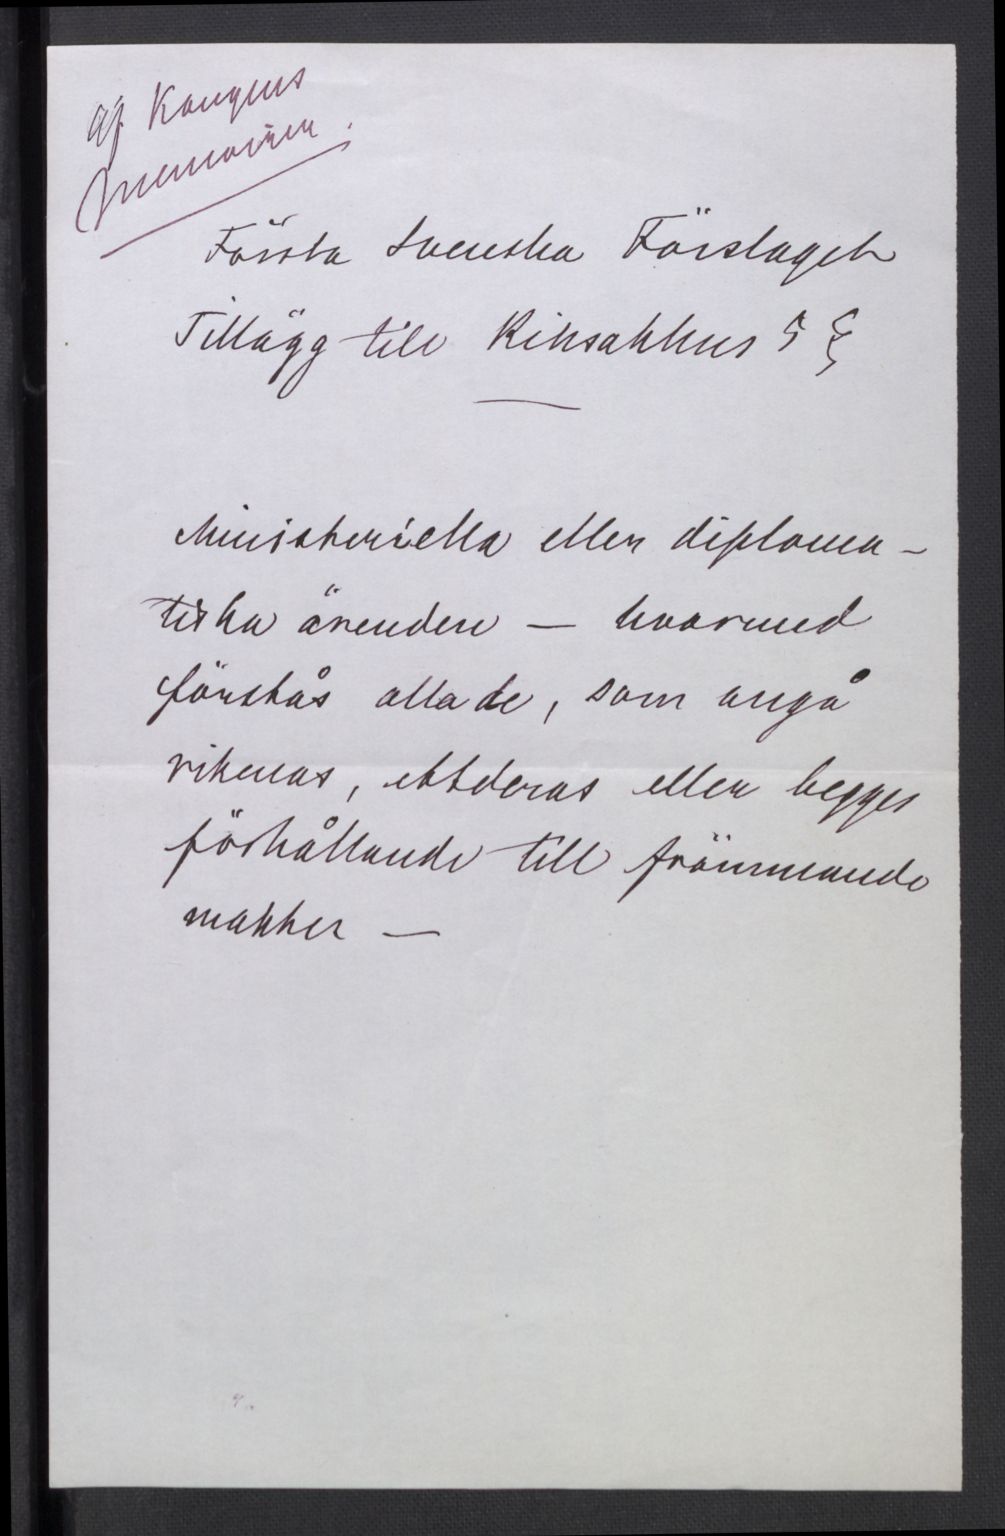 Af Kongens
Memoiren.
Första Svenska Förslaget
Tillägg till Riksakkens 5 §
Ministeriella eller diploma-
tiska ärenden — hvarmed
förstås alla de, som angå
rikenas, ettderas eller begges
förhållande till främmande
makter —